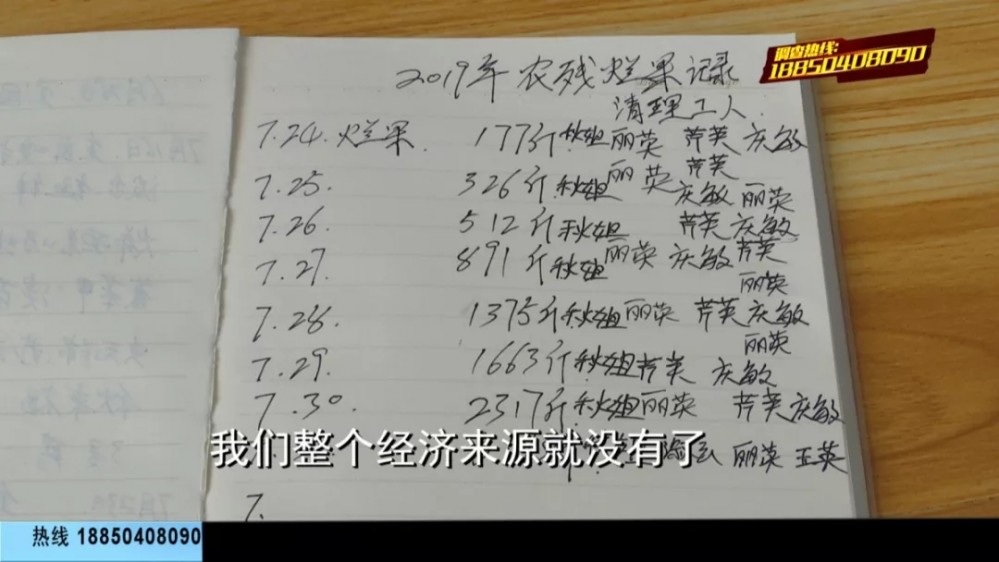 调查热线:
18850408090
2019年农残烂果记录
清理工人
7.24.烂果 177斤 秋姐 丽英 芹英 庆敏
7.25. 326斤 秋姐 丽英 芹英 庆敏 丽英
7.26. 512斤 秋姐 芹英 庆敏
7.27. 891斤 秋姐 丽英 庆敏 芹英
丽英
7.28. 1375斤 秋姐 丽英 芹英 庆敏
丽英
7.29. 1663斤 秋姐 芹英 庆敏
7.30. 2317斤 秋姐 丽英 芹英 庆敏
丽英 玉英
我们整个经济来源就没有了
7.
热线 18850408090